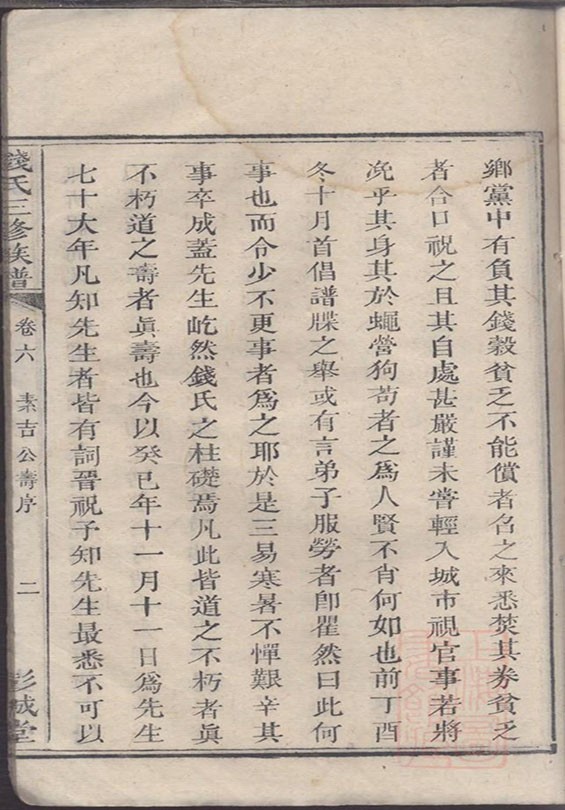 鄉黨中有負其錢穀貧乏不能償者名之來悉焚其券貧乏
者合口祝之且其自處甚嚴謹未嘗輕入城市視官事若將
凂乎其身其於蠅營狗苟者之爲人賢不肖何如也前丁酉
冬十月首倡譜牒之舉或有言弟子服勞者卽瞿然曰此何
事也而令少不更事者爲之耶於是三易寒暑不憚艱辛其
事卒成蓋先生屹然錢氏之柱礎焉凡此皆道之不朽者眞
不朽道之壽者眞壽也今以癸巳年十一月十一日爲先生
七十大年凡知先生者皆有詞晉祝予知先生最悉不可以
錢氏三修族譜
卷六
素吉公壽序
二
彭城堂